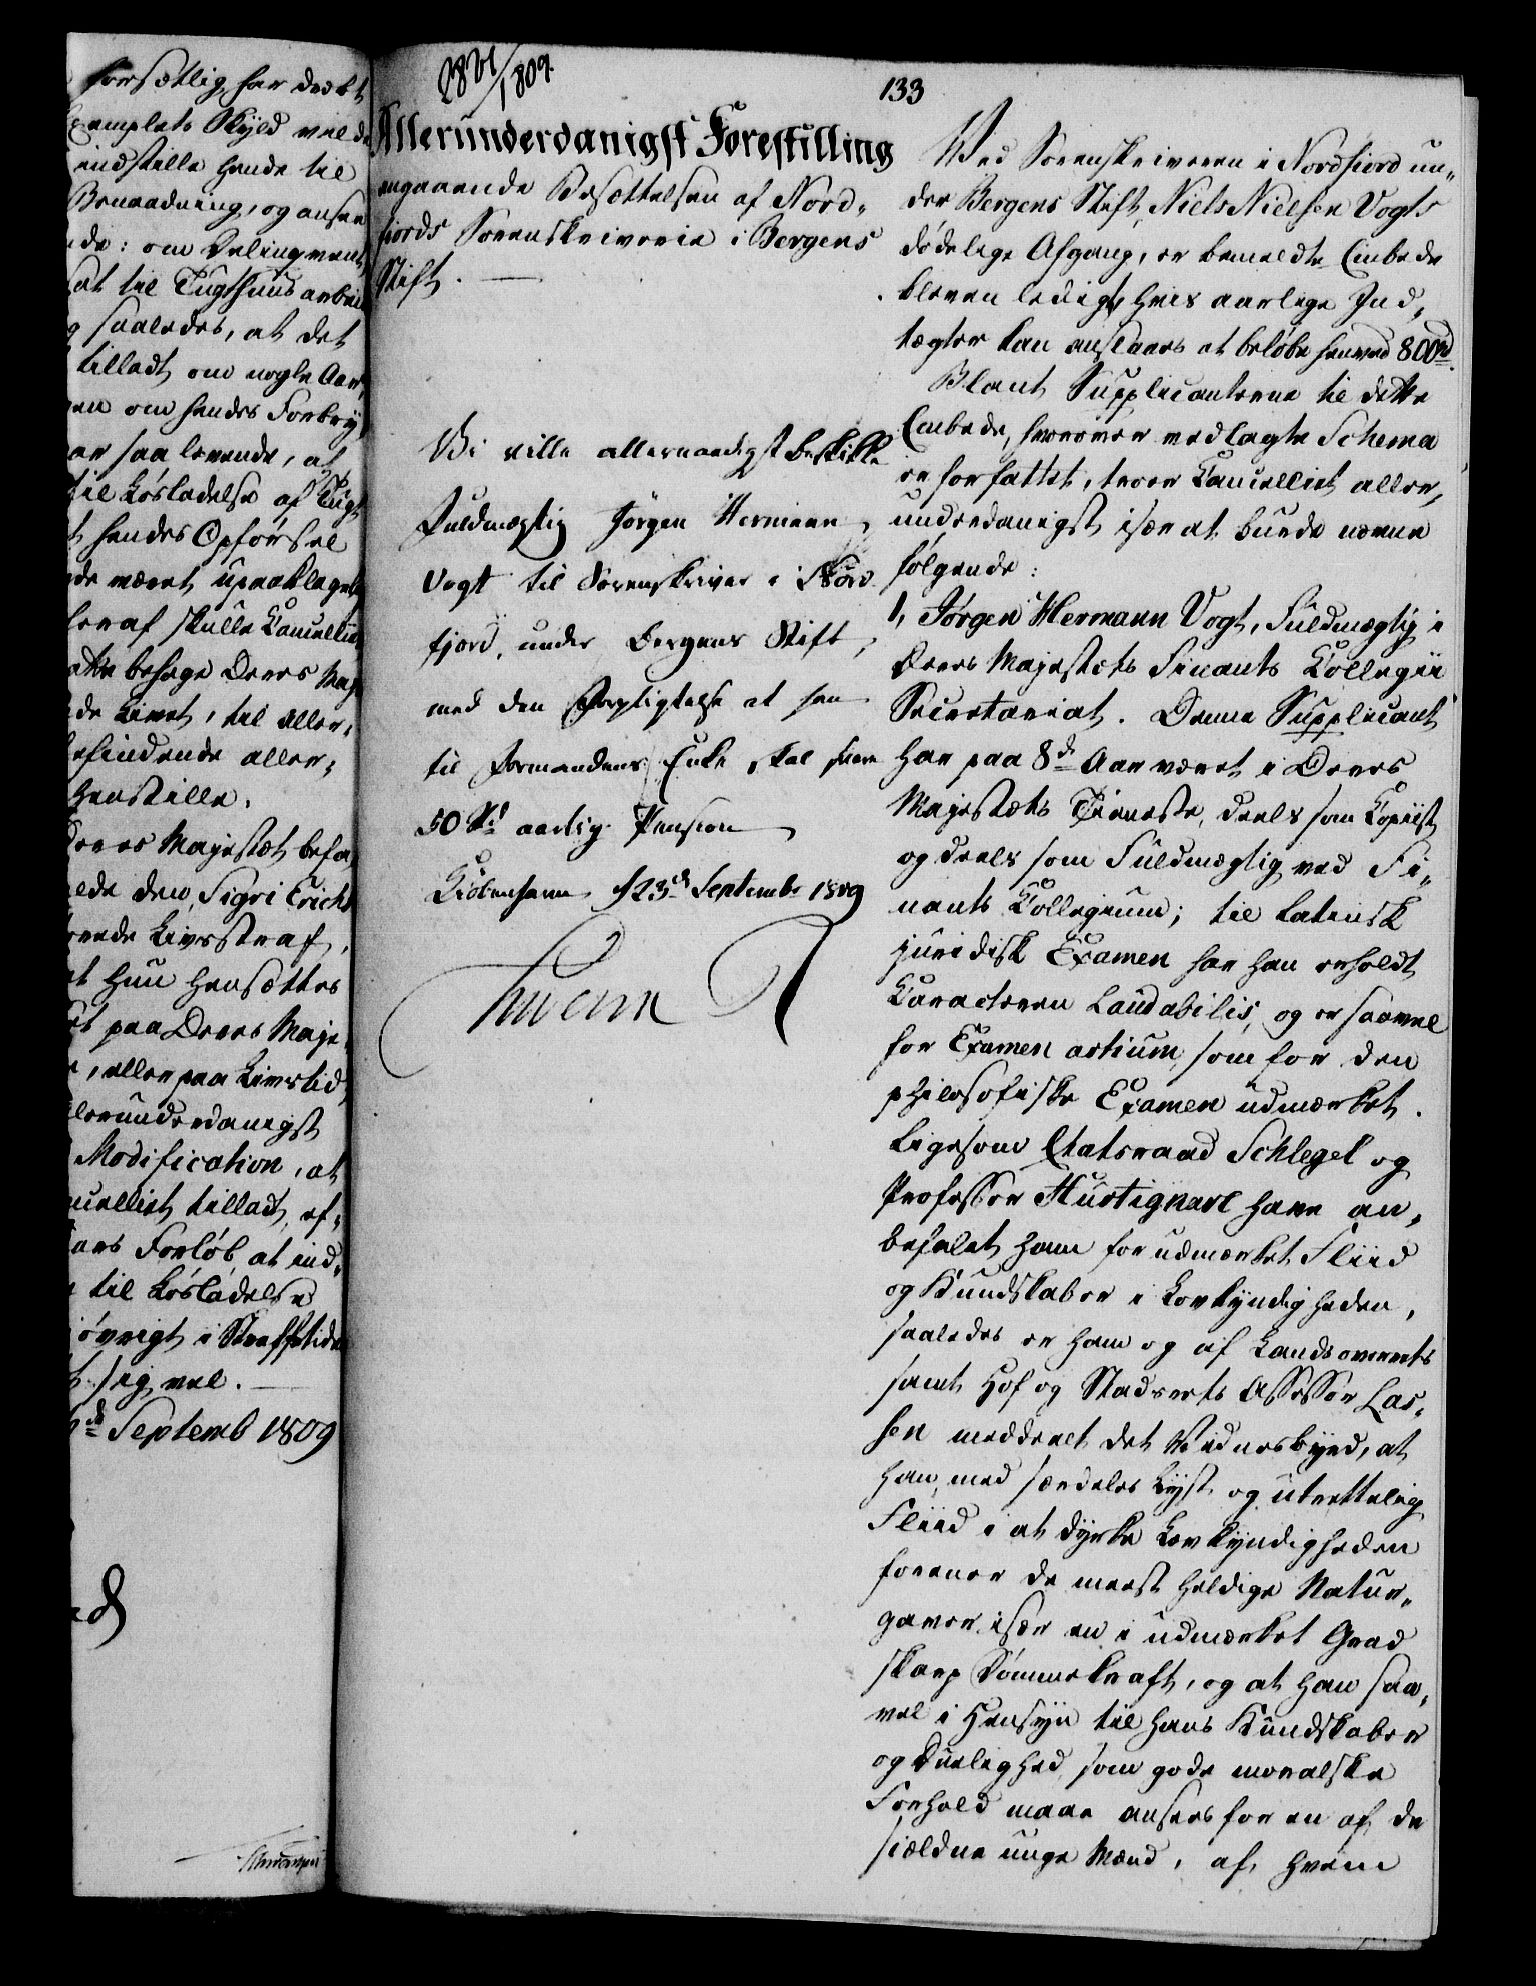 forsætlig har dræbt
Exemplets Skyld vilde
indstille hende til
Benaadning, og ansee
de: om Delinqvent
sat til Tugthuusarbeid
saaledes, at det
tilladt om nogle Aar
en om hendes Forbry
ar saa levende, at
til Løsladelse af Tugt
hendes Opførsel
de været upaaklagelig
heraf skulle Cancelliet
behage Deres Maj
de Livet, til aller,,
befindende aller,,
henstille.
Deres Majestæt befa
lede den Sigri Erichs
ørende Livsstraf,
at hun hensættes
paa Deres Maje
, eller paa Livstid,
allerunderdanigst
Modification, at
ncelliet tilladt, ef,,
ars Forløb, at ind,,
til Løsladelse
øvrigt i Straffetiden
sig vel.
d. Septemb 1809
2821/1809.
133
Allerunderdanigst Forestilling
angaaende Besættelsen af Nord,,
fjords Sorenskriverie i Bergens
Stift.
Vi ville allernaadigst beskikke
Fuldmægtig Jørgen Hermann
Vogt til Sorenskriver i Nord
fjord, under Bergens Stift,
med den Forpligtelse at han
til Formandens Enke skal svare
50 Rd aarlig Pension
Kiøbenhavn d 23d Septembr 1809
Frederik R
Ved Sorenskriveren i Nordfiord un,,
der Bergens Stift, Niels Nielsen Vogts
dødelige Afgang, er bemeldte Embede
bleven ledigt, hvis aarlige Ind,,
tægter kan anslaaes at beløbe henved 800rd.
Blant Supplicanterne til dette
Embede, hvorover vedlagte Schema
er forfattet, troer Cancelliet aller,,
underdanigst især at burde nævne
følgende:
1, Jørgen Hermann Vogt, Fuldmægtig i
Deres Majestæts Finants Collegii
Secretariat. Denne Supplicant
har paa 8de Aar været i Deres
Majestæts Tieneste, deels som Copiist
og deels som Fuldmægtig ved Fi,,
nants Collegium; til latinsk
juridisk Examen har han erholdt
Caracteren Laudabilis, og er saavel
for Examen artium, som for den
philosofiske Examen udmærket.
Ligesom Etatsraad Schlegel og
Professor Hurtigkarl have an,,
befalet ham for udmærket Fliid
og Kundskaber i Lovkyndigheden,
saaledes er ham og af Landsoverrets
samt Hof og Stadsrets Assessor Las,,
sen meddeelt det Vidnesbyrd, at
han med særdeles Lyst og utrættelig
Fliid i at dyrke Lovkyndigheden
forener de meest heldige Natur,,
gaver, især en i udmærket Grad
skarp Dømmekraft, og at han saa,,
vel i Hensyn til hans Kundskaber
og Duelighed som gode moralske
Forhold maae ansees for en af de
sieldne unge Mænd, af hvem